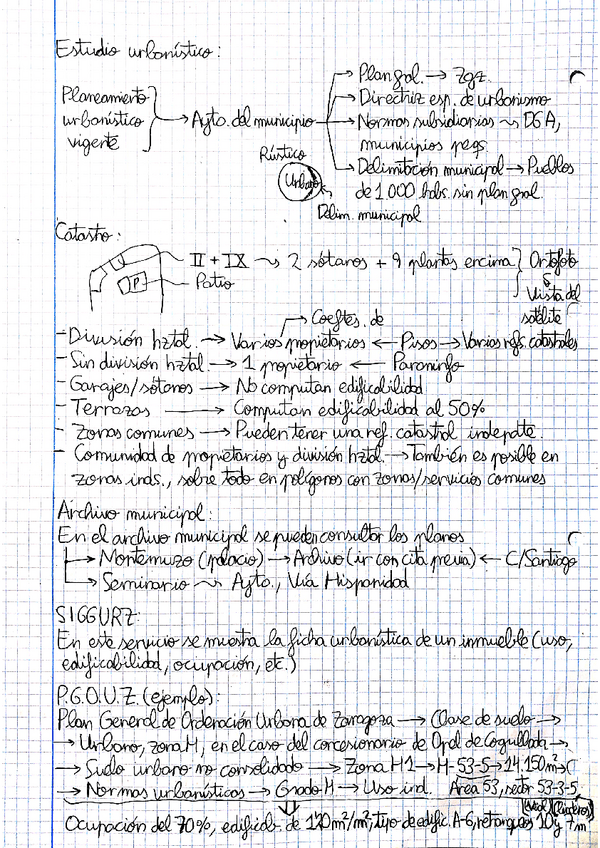 Estudio urbanístico:
Planeamiento urbanístico vigente → Ayto. del municipio
→ Plan gral. → Zgz.
→ Directriz esp. de urbanismo
→ Normas subsidiarias ⤳ DGA, municipios peqs.
→ Delimitación municipal → Pueblos de 1000 habs. sin plan gral.
Rústico
Urbano
Delim. municipal
Catastro:
II + IX ⤳ 2 sótanos + 9 plantas encima
P
Patio
Ortofoto
ó
Vista del
satélite
Coeftes. de
- División hztal. → Varios propietarios ← Pisos → Varias refs. catastrales
- Sin división hztal. → 1 propietario ← Paraninfo
- Garajes/sótanos → No computan edificabilidad
- Terrazas → Computan edificabilidad al 50%
- Zonas comunes → Pueden tener una ref. catastral indepdte.
- Comunidad de propietarios y división hztal. → También es posible en
zonas inds., sobre todo en polígonos con zonas/servicios comunes
Archivo municipal:
En el archivo municipal se pueden consultar los planos
→ Montemuzo (palacio) → Archivo (ir con cita previa) ← C/Santiago
→ Seminario ⤳ Ayto., Vía Hispanidad
SIGGURZ:
En este servicio se muestra la ficha urbanística de un inmueble (uso,
edificabilidad, ocupación, etc.)
P.G.O.U.Z. (ejemplo):
Plan General de Ordenación Urbana de Zaragoza → Clase de suelo →
→ Urbano, zona H, en el caso del concesionario de Opel de Cogullada →
→ Suelo urbano no consolidado → Zona H1 → H-53-5 → 14150m² →
→ Normas urbanísticas → Grado H → Uso ind. Área 53, sector 53-3-5
Ocupación del 70%, edificab. de 1'20 m²/m², tipo de edific. A-6, retranqueos 10 y 7 m